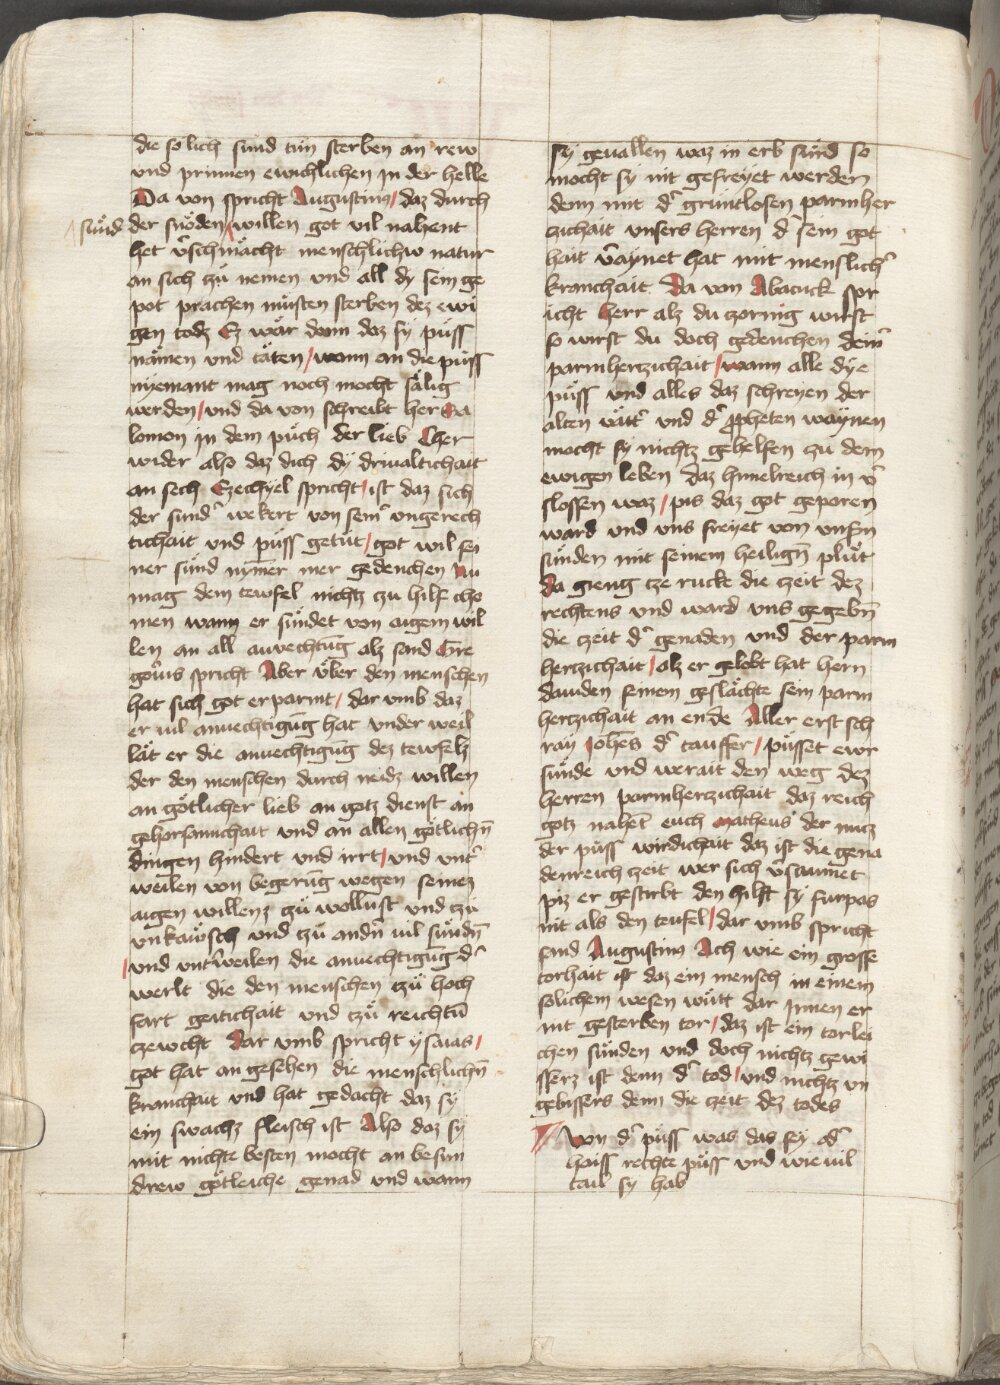 die solich sund tun sterben an rew
vnd prinnen ewichlichen in der helle
Da von spricht Augustinus / daz durch
sünd der snöden willen got vil nahent
het v̂schmächt menschlichw natur
an sich zü nemen vnd all dy sein ge
pot prachen müsten sterben dez ewi
gen todz Ez wär dann daz sy püss
nämen vnd täten / wann an die püss
nyemant mag noch mocht sälig
werden / vnd da von schreibt her Sa
lomon in dem püch der lieb Cher
wider also daz dich dÿ driualtichait
an sech Ezechyel spricht / ist daz sich
der sund' bekert von sein' vngerech
tichait vnd püss getüt / got wil sei
ner sünd nym̄er mer gedenchen Nu
mag dem tewfel nichtz czu hilf cho
men wann er sündet von aigem wil
len an all anvechtūg alz sand Gre
gorius spricht Aber über den menschen
hat sich got erparmt / dar vmb daz
er vil anuechtigūg hat vnder weil
lät er die anuechtigūg dez tewfelz
der den menschen durch neidz willen
an götlicher lieb an gotz dienst an
gehorsamchait vnd an allen götlichn̄
dingen hindert vnd irrt / vnd vnt'
weilen von begerūg wegen seinez
aigen willenz zü wollust vnd czü
vnkaüsch vnd czü andn̄ vil sündn̄
/ vnd vnt'weilen die anuechtigūg d'
werlt die den menschen czü hoch
fart geitichait vnd czü reichtū
czewcht Dar vmb spricht ysaias /
got hat an gesehen die menschlichn̄
kranchait vnd hat gedacht daz sy
ein swachz fleisch ist Also daz sy
mit nichte besten mocht an besun
drew götleiche genad vnd wann
sÿ geuallen waz in erb sünd so
mocht sy nit gefreyet werden
denn mit d' gruntlosen parmher
czichait vnsers herren d' sein got
hait v̂aynet hat mit menslich'
kranchait Da von Abacuck spr
icht herr alz du zornig wirst
so wirst du doch gedenchen dein'
parmhertzichait / wann alle dye
püss vnd alles daz schreyen der
alten vät' vnd d' ꝓpheten waÿnen
mocht sy nichtz gehelfen zu dem
ewigen leben daz himelreich in v̂
slossen waz / pis daz got geporen
ward vnd vns freyet von vnsn̄
sünden mit seinem heilign̄ plüt
da gieng cze ruck die czeit dez
rechtens vnd ward vns gegebn̄
die czeit d' genaden vnd der parm
hertzichait / alz er gelobt hat hern
dauiden seinem geslächte sein parm
hertzichait an ende Aller erst sch
ray Joh̄es d' tauffer / püsset ewr
sünde vnd berait den weg dez
herren parmherczichait daz reich
gotz nahet euch Matheus der nucz
der püss wirdichait daz ist die gena
denreich zeit wer sich v̂saumet
piz er gestirbt den hilft sy furpas
nit als den teufel / dar vmb spricht
sand Augustinus Ach wie ein grosse
torhait ist daz ein mensch in einem
solichem wesen wüt dar Innen er
nit gesterben tor / daz ist ein torlei
chen sünden vnd doch nichtz gewi
sserz ist denn d' tod / vnd nichtz vn
gebissers denn die zeit dez todes
Von d' püss was das sey od'
haiss rechte püss vnd wie vil
tail sy hab